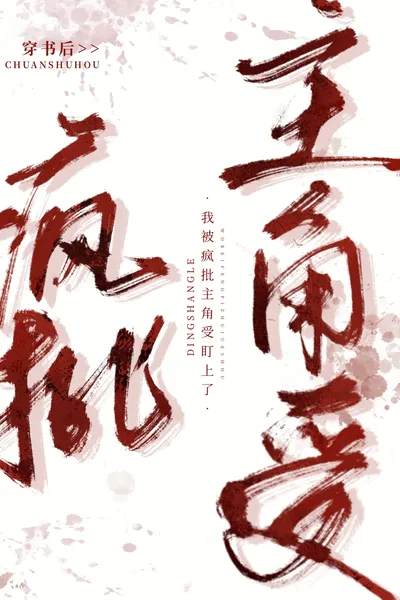 穿书后>>
CHUANSHUHOU
疯批
主角受
·我被疯批主角受盯上了·
DINGSHANGLE
WOBEIFENGPIZHUJUESHOU